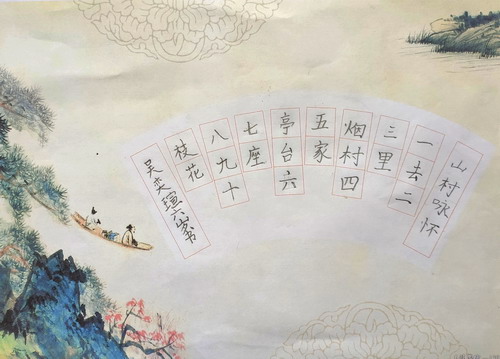 山村咏怀
一去二
三里
烟村四
五家
亭台六
七座
八九十
枝花
吴奕瑄书